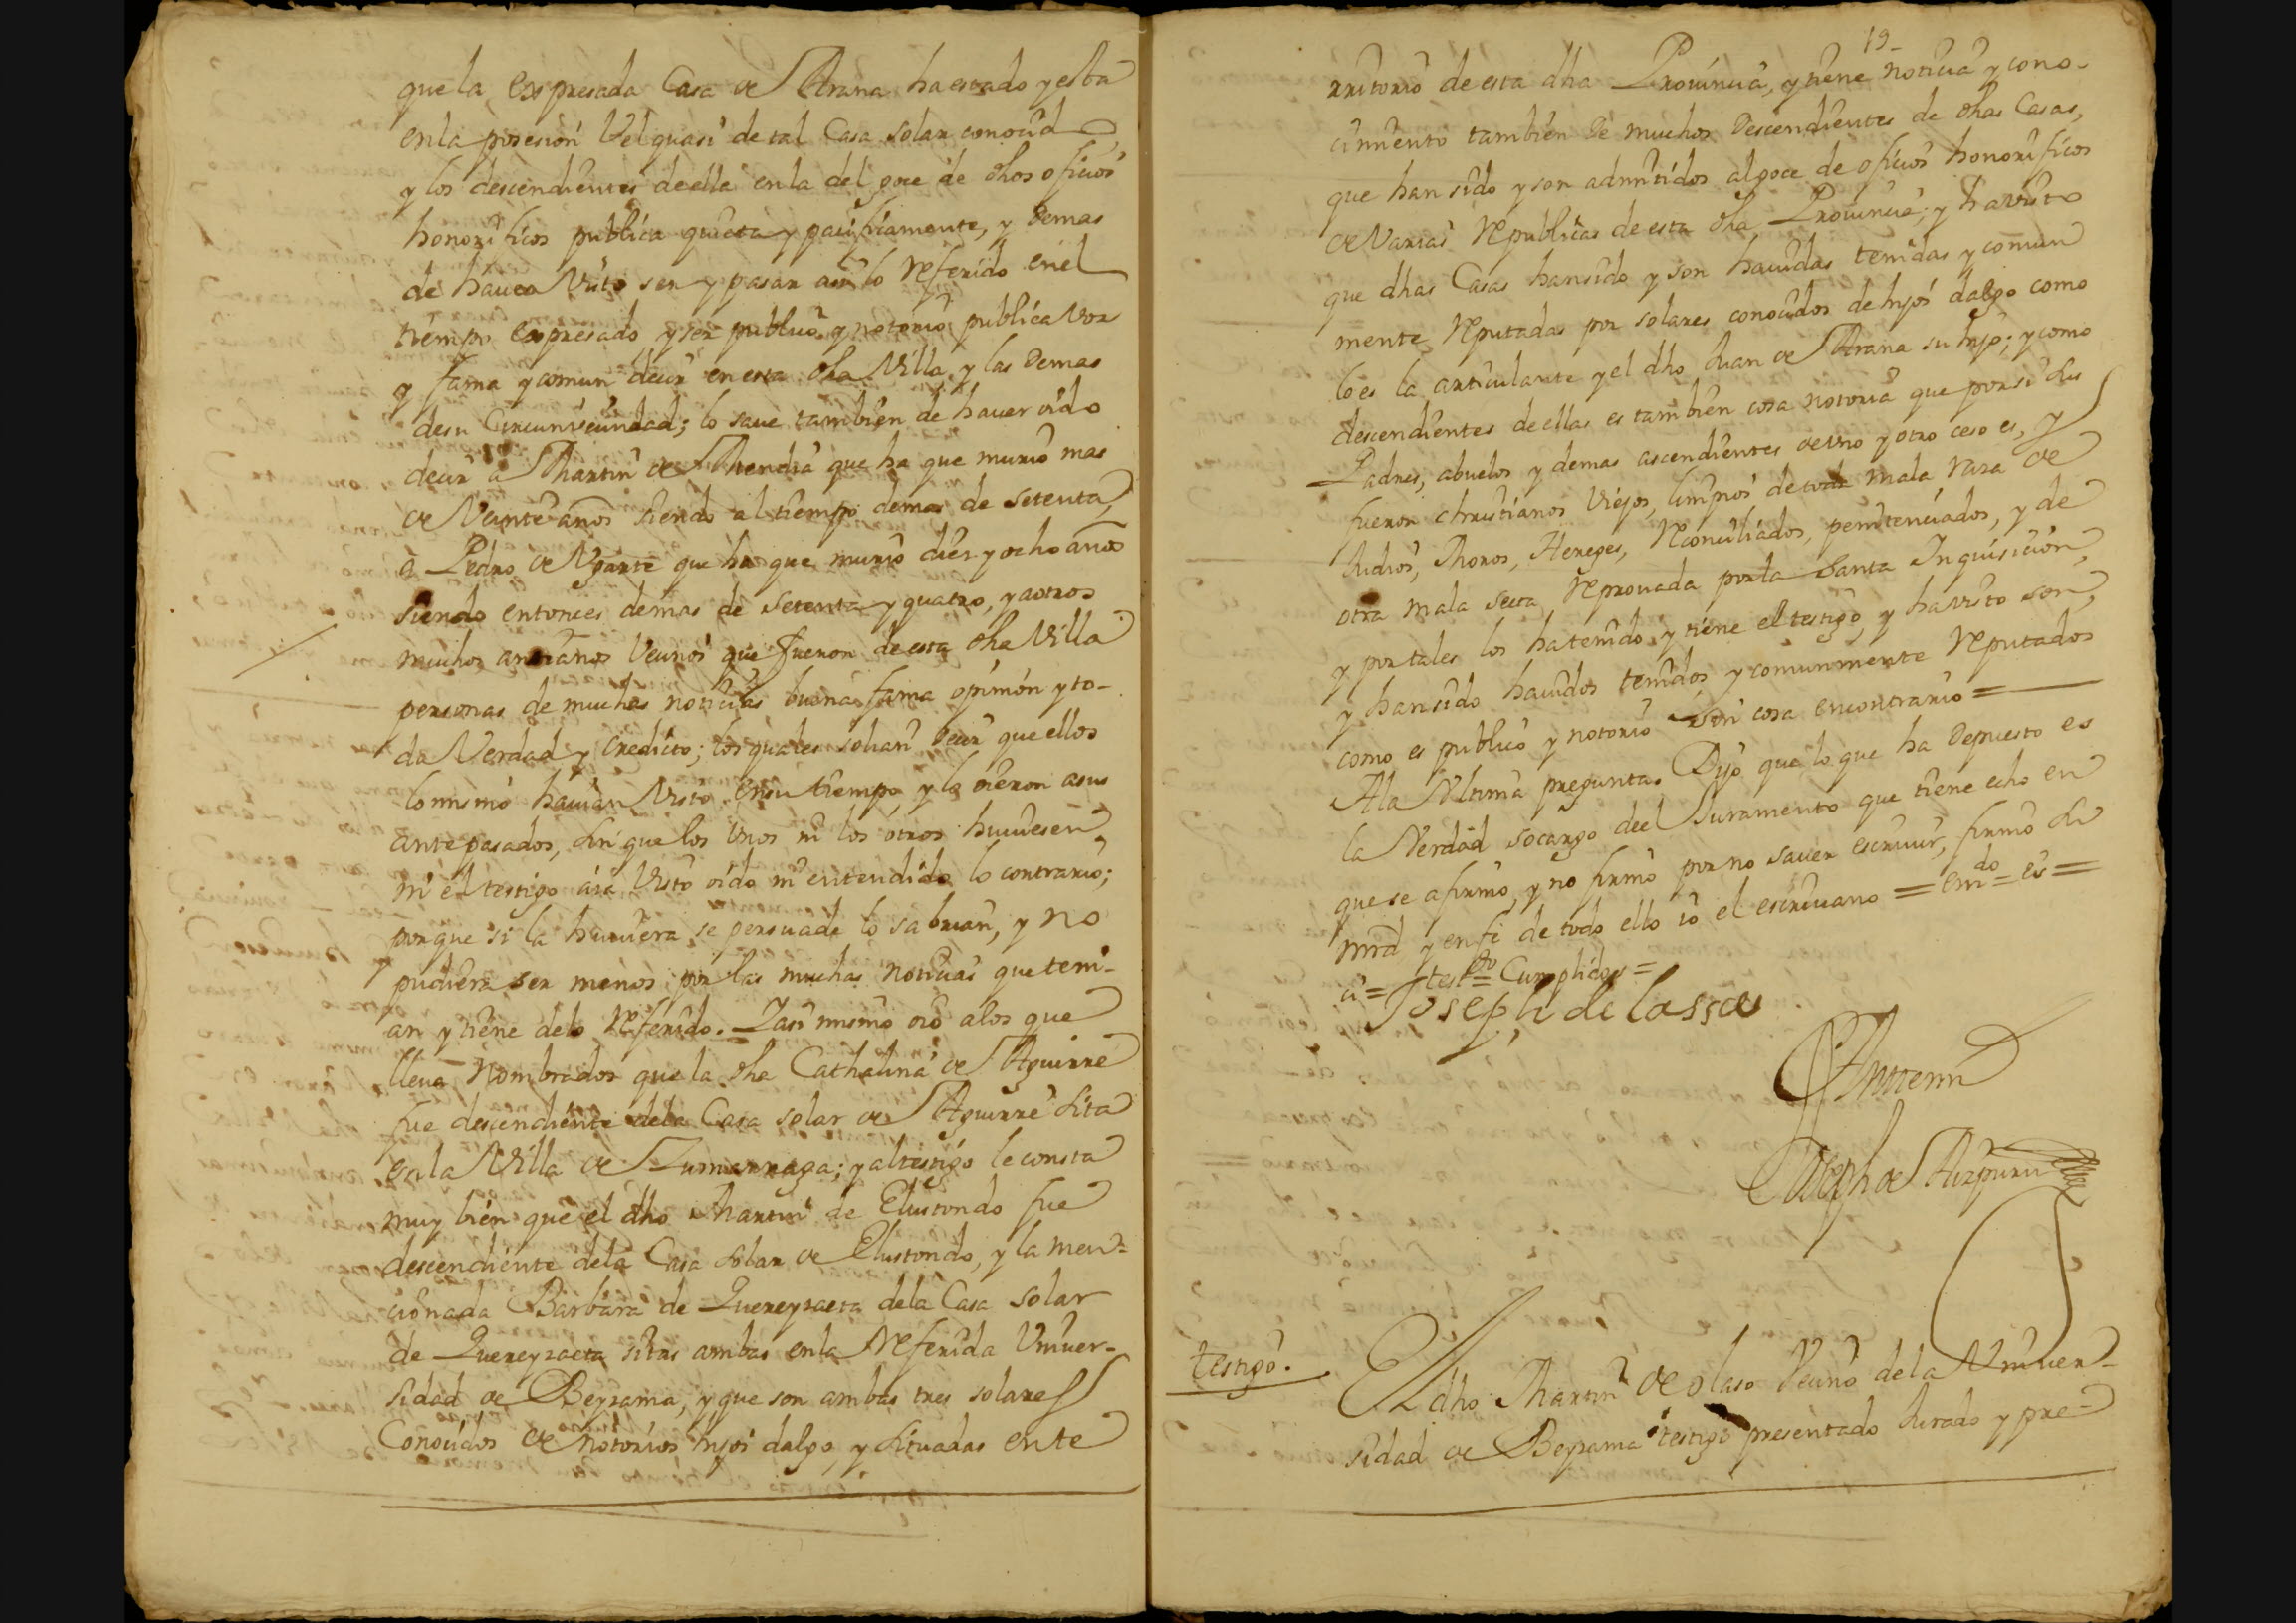 que la expresada Casa de Arana ha estado y esta
en la posesion Vel quasi de tal Casa solar conocid
y los descendientes de ella en la del goce de dhos oficios
honorificos publica quieta y pacificamente, y demas
de haver visto ser y pasar asi lo referido en el
tiempo expresado y ser publico y notorio publica voz
y fama y comun decir en esta dha Villa y las demas
de su Circunvecindad; lo save tambien de haver oido
decir a Martin de Mendia que ha que murio mas
de Veinte años siendo al tiempo demas de setenta,
à Pedro de Ugarte que ha que murio diez y ocho años
siendo entonces demas de setenta y quatro, y a otros
muchos ancianos Vecinos que fueron de esta dha Villa
personas de muchas noticias buena fama opinion y to-
da Verdad y Credicto; los quales solian decir que ellos
lo mismo havian Visto en su tiempo y lo oieron a sus
antepasados, sin que los Unos ni los otros huviesen
ni el testigo aia Visto oido ni entendido lo contrario;
porque si la huviera se persuade lo sabrian, y no
pudiera ser menos por las muchas noticias que teni-
an y tiene delo referido. Y asi mismo oio a los que
lleva nombrados que la dha Cathalina de Aguirre
fue descendiente dela Casa solar de Aguirre sita
en la Villa de Zumarraga; y al testigo le consta
muy bien que el dho Martin de Elustondo fue
descendiente dela Casa solar de Elustondo, y la men-
cionada Barbara de Quereyzaeta dela Casa solar
de Quereyzaeta sitas ambas en la Referida Univer-
sidad de Beyzama, y que son ambas tres solares
Conocidos de notorios hijos dalgo, y situadas en te
19-
rritorio de esta dha Provincia, y tiene noticia y cono-
cimiento tambien de muchos descendientes de dhas Casas,
que han sido y son admitidos al goce de oficios honorificos
de Varias Republicas de esta dha Provincia; y ha visto
que dhas Casas han sido y son havidas tenidas y comun
mente Reputadas por solares conocidos de hijos dalgo como
lo es la articulante y el dho Juan de Arana su hijo; y como
descendientes de ellas es tambien cosa notoria que por si sus
Padres, abuelos y demas ascendientes de uno y otro sexo es, y
fueron christianos Viejos, limpios de toda mala raza de
Judios, Moros, Hereges, Reconciliados, penitenciados, y de
otra mala secta Reprovada por la Santa Inquisicion,
y por tales los ha tenido y tiene el testigo, y ha visto son,
y han sido havidos tenidos y comunmente Reputados
como es publico y notorio sin cosa en contrario =
A la Ultima pregunta Dijo que lo que ha depuesto es
la Verdad so cargo de el Juramento que tiene echo en
que se afirmo, y no firmo por no saver escrivir, firmo su
mrd y en fe de todo ello io el escrivano = em do = es =
ci = test go = Cumplidos =
Joseph de lassa
Ante mi
Joseph de Aizpuru
testigo.
El dho Martin de olaso Vecino de la Univer-
sidad de Beyzama testigo presentado Jurado y pre-